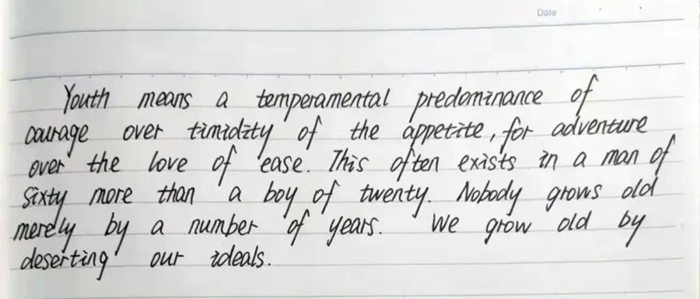 Date
Youth means a temperamental predominance of
courage over timidity of the appetite, for adventure
over the love of ease. This often exists in a man of
Sixty more than a boy of twenty. Nobody grows old
merely by a number of years. We grow old by
deserting our ideals.